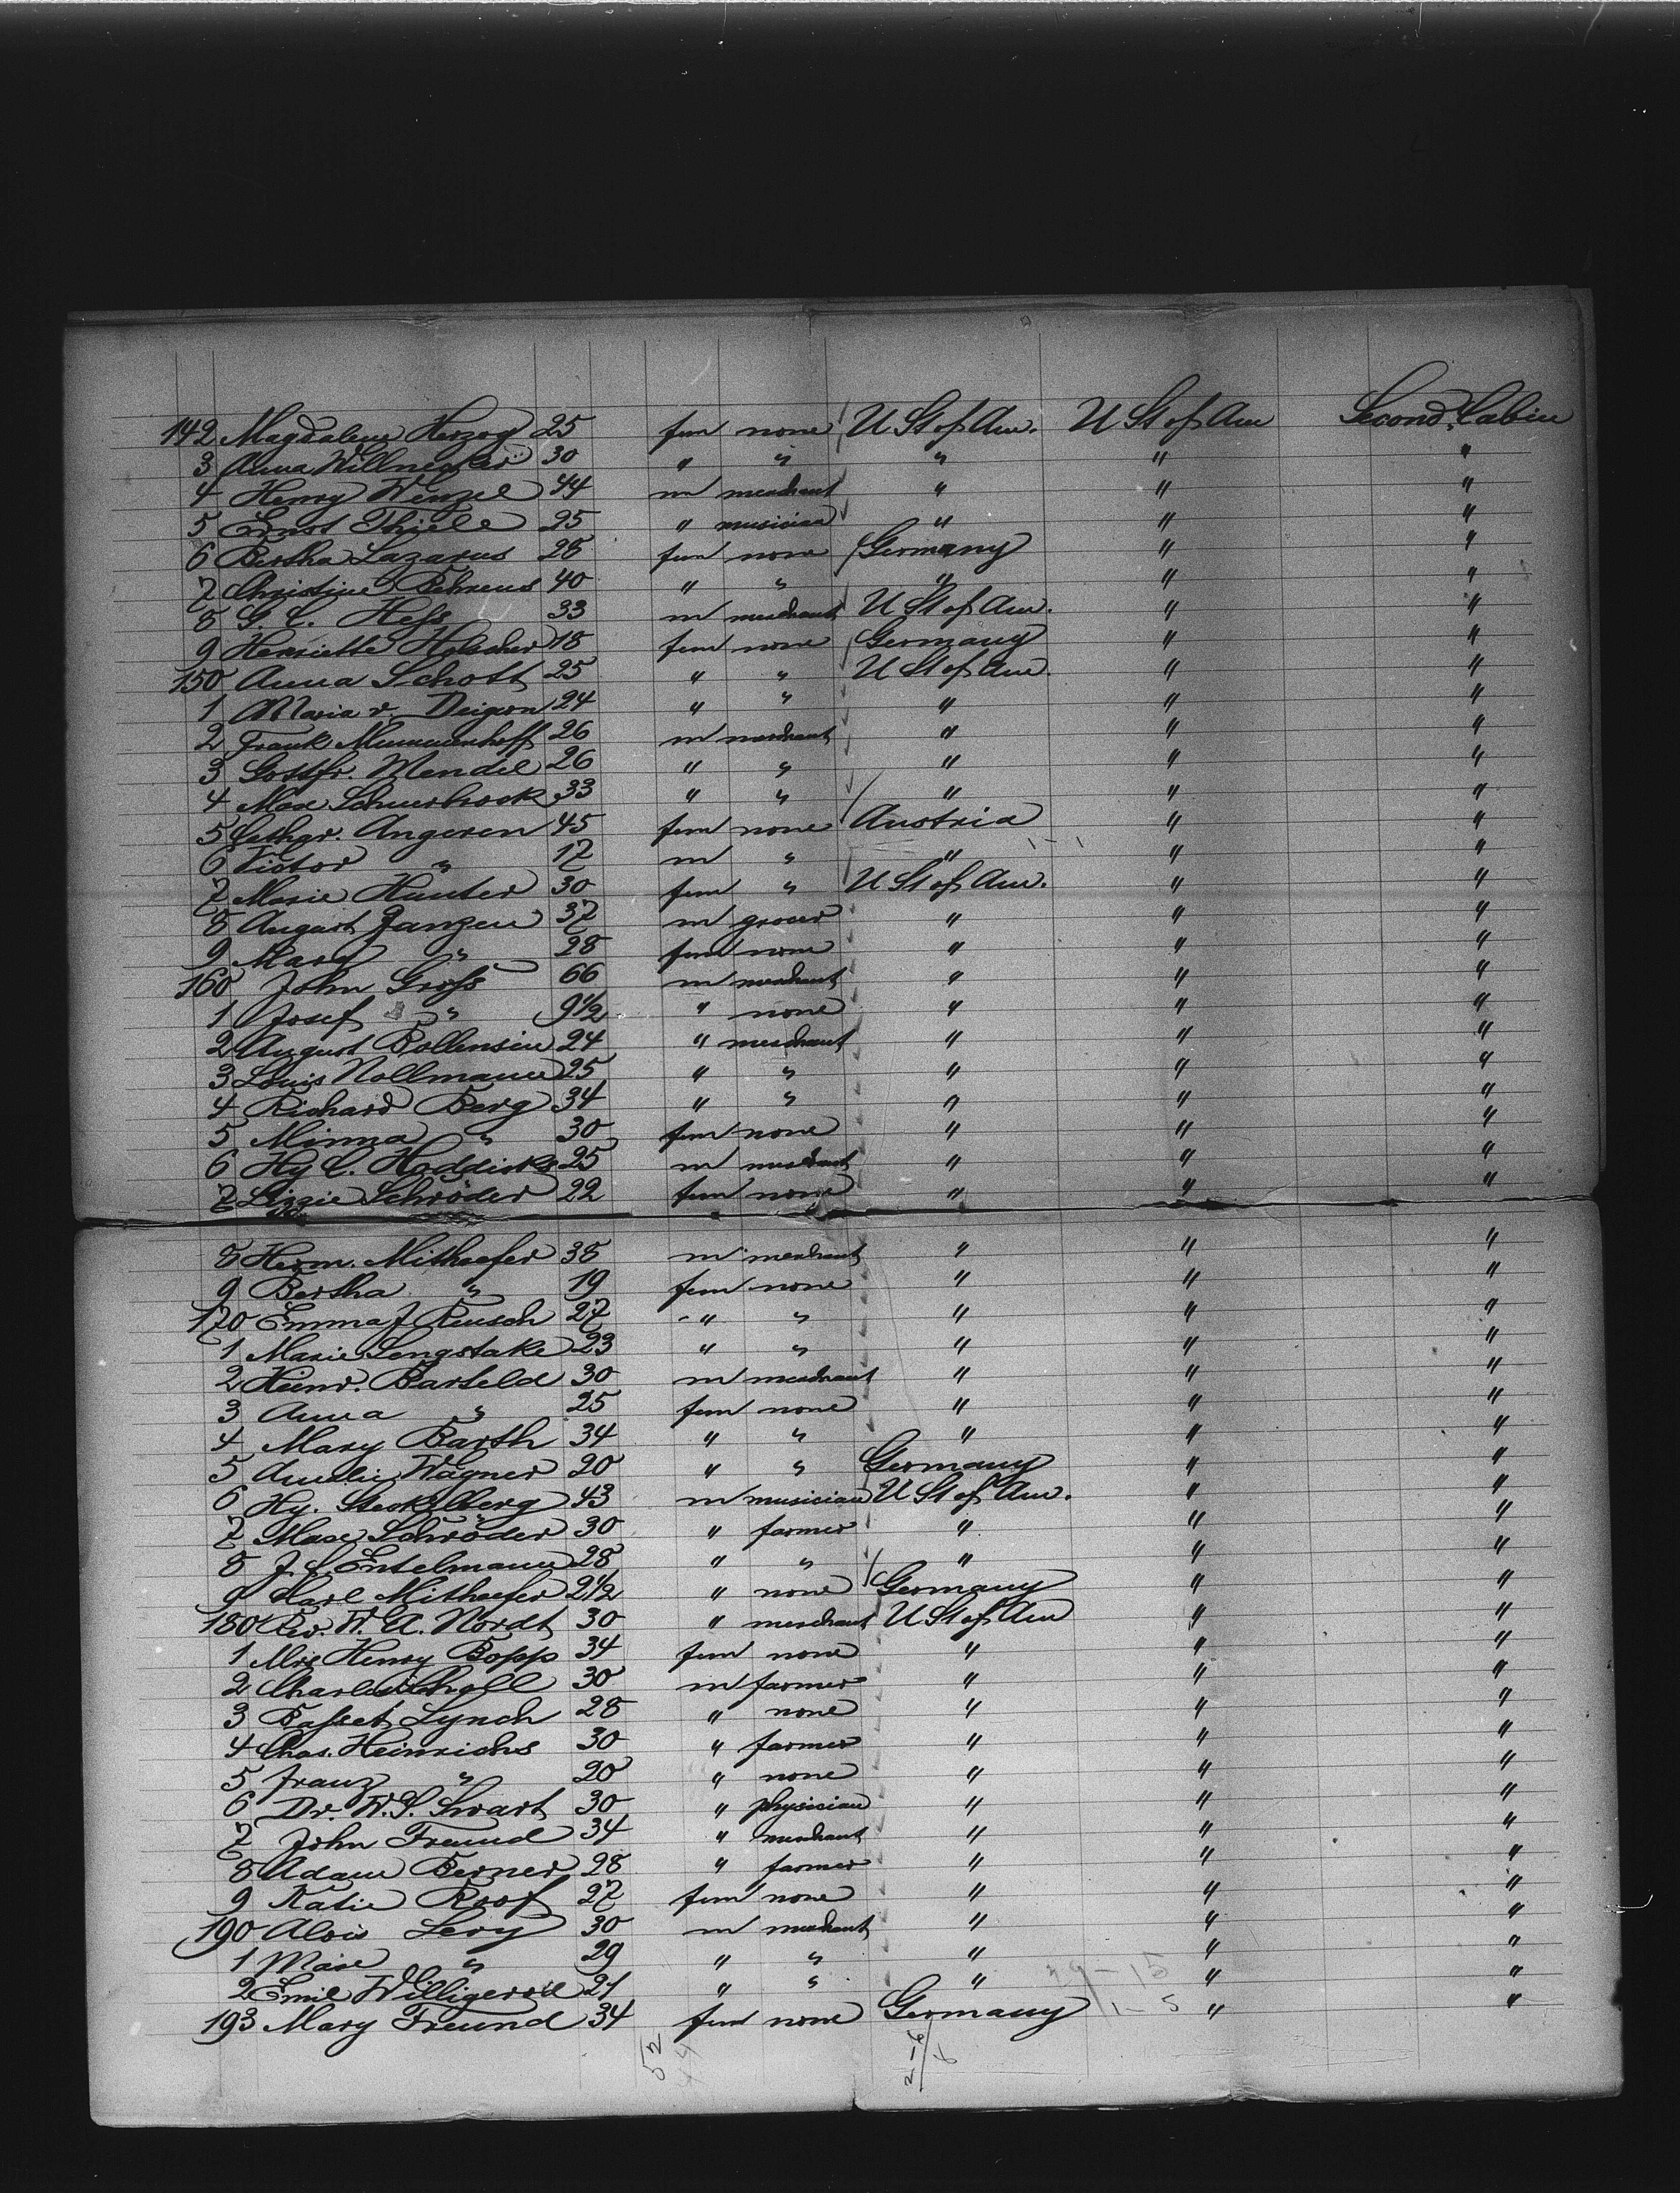 142 Magdalena Herzog 25 fem none U St of Am. U St of Am Second Cabin
3 Anna 30 " " " " "
4 Henry Wenzel 44 m merchant " " "
5 Ernst Thiele 25 " musician " " "
6 Bertha Lazarus 28 fem none Germany " "
7 Christine Behrens 40 " " " " "
8 G. C. Hess 33 m merchant U St of Am. " "
9 Henriette Holscher 18 fem none Germany " "
150 Anna Schott 25 " " U St of Am. " "
1 Maria v. Deigen 24 " " " " "
2 Frank Mummenhoff 26 m merchant " " "
3 Gottfr. Mendel 26 " " " " "
4 Max 33 " " " " "
5 Angeren 45 fem none Austria " "
6 Victor " 17 m " " " "
7 Marie Hunter 30 fem " U St of Am. " "
8 August Janzen 37 m grocer " " "
9 Mary " 28 fem none " " "
160 John Gross 66 m merchant " " "
1 Josef " 9 1/2 " none " " "
2 August Bollensin 24 " merchant " " "
3 Louis Nollmann 25 " " " " "
4 Richard Berg 34 " " " " "
5 Minna " 30 fem none " " "
6 Hy C. 25 m merchant " " "
7 Lizzie Schröder 22 fem none " " "
8 Herm. Mithoefer 38 m merchant " " "
9 Bertha " 19 fem none " " "
170 Emma J Reusch 27 " " " " "
1 Marie Lengstake 23 " " " " "
2 Heinr. Barfeld 30 m merchant " " "
3 Anna " 25 fem none " " "
4 Mary Barth 34 " " " " "
5 Amelie Wagner 20 " " Germany " "
6 Hy. Steckelberg 43 m musician U St of Am. " "
7 Max Schröder 30 " farmer " " "
8 J. C. Entelmann 28 " " " " "
9 Karl Mithoefer 2 1/2 " none Germany " "
180 Rev. W. A. Nordt 30 " merchant U St of Am " "
1 Mrs Henry Bopp 34 fem none " " "
2 Charles Scholl 30 m farmer " " "
3 Basset Lynch 28 " none " " "
4 Chas. Heinrichs 30 " farmer " " "
5 Franz " 20 " none " " "
6 Dr. W. S. Swart 30 " physician " " "
7 John Freund 34 " merchant " " "
8 Adam Berner 28 " farmer " " "
9 Katie Roof 27 fem none " " "
190 Alois Levy 30 m merchant " " "
1 Max " 29 " " " " "
2 Emil Willigerod 21 " " " " "
193 Mary Freund 34 fem none Germany " "
52